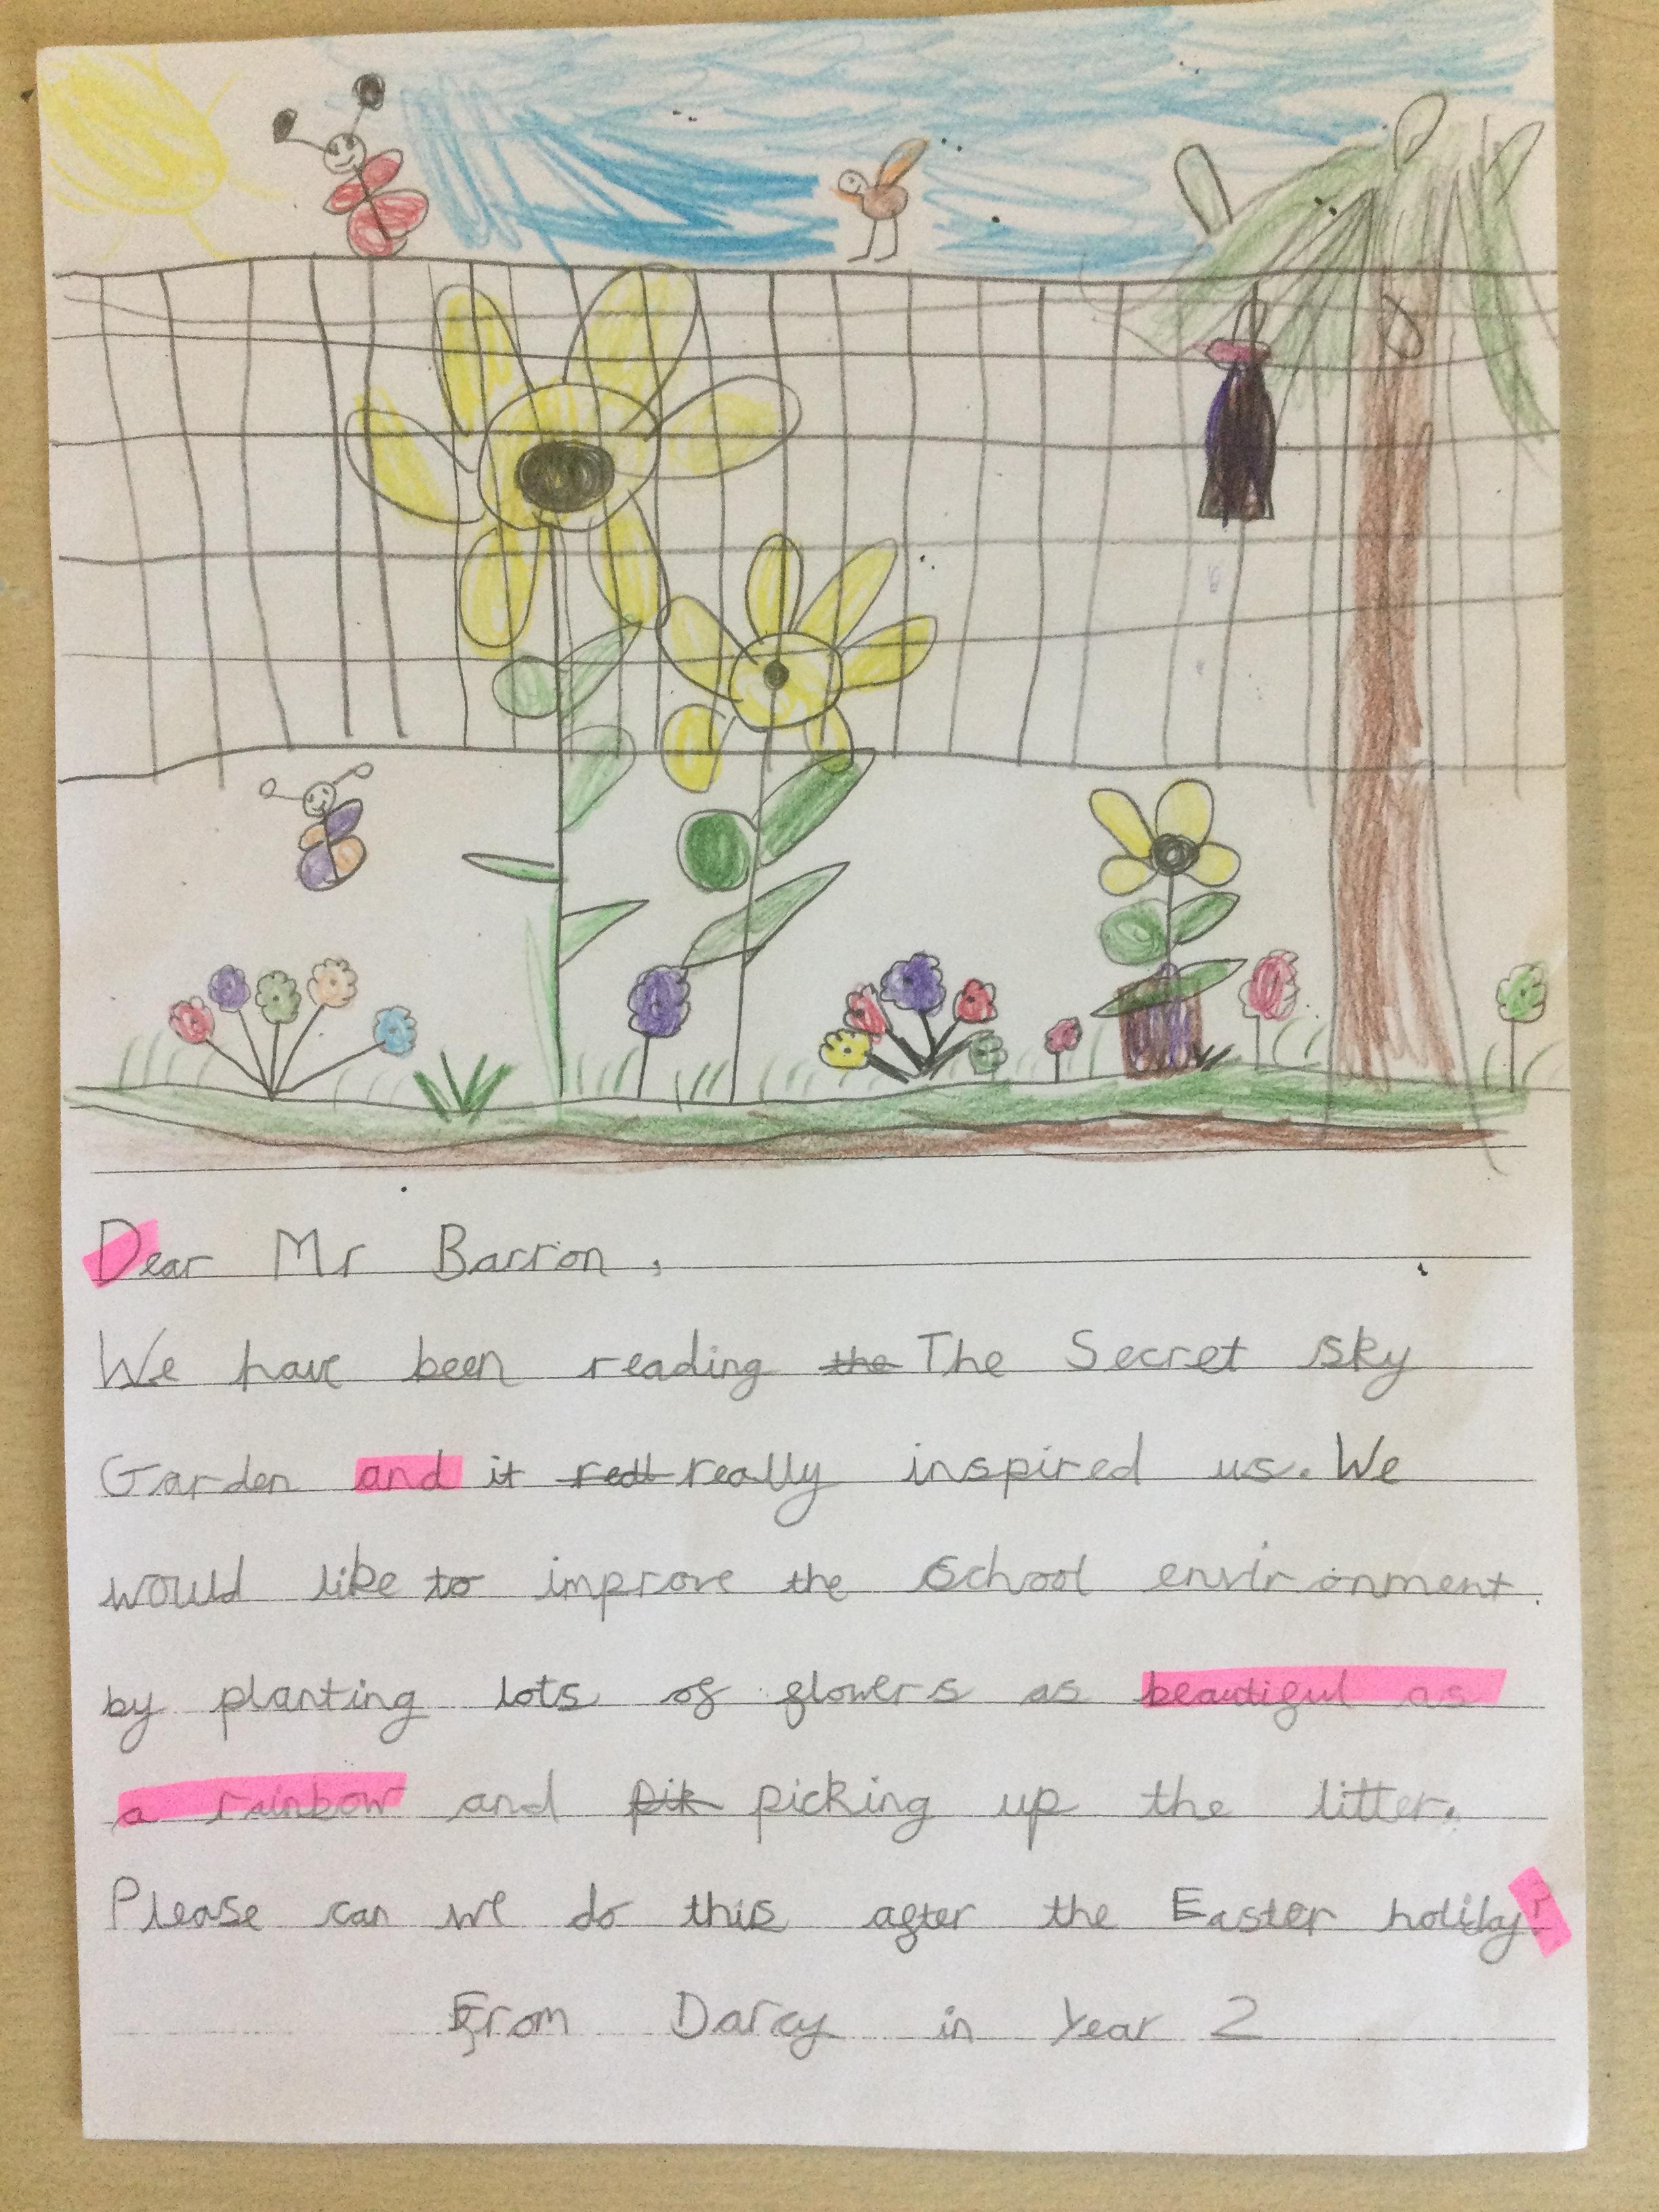 Dear Mr Barron,
We have been reading the The Secret sky
Garden and it reall really inspired us. We
would like to improve the School environment.
by planting lots of flowers as beautiful as
a rainbow and pik picking up the litter.
Please can we do this after the Easter holiday?
From Darcy in Year 2